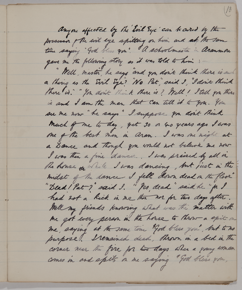 Anyone affected by the Evil Eye can be cured by the
possessor of the evil eye spitting on him and at the same
time saying "God bless you". A schoolmaster in Aranmore
gave me the following story as it was told to him:
"Well master" he says "and you don't think there is such
a thing as the Evil Eye?" "No Pat", said I, "I don't think
there is." "You don't think there is? Well! I tell you there
is and I am the man that can tell it to you. You
see me now" he says "I suppose you don't think
much of me to day, but 20 or 30 years ago I was
one of the best men in Aran. I was one night at
a dance and though you would not believe me now
I was then a fine dancer. I was admired by all in
the house while I was dancing, but just in the
midst of the dance I fell down dead on the floor"
"Dead! Pat?" said I. "Yes, dead" said he "for I
had not a kick in me then nor for two days after.
Well my friends knowing what was the matter with
me got every person in the house to throw a spit on
me saying at the same time "God bless you", but to no
purpose. I remained dead, thrown in a bed in the
corner near the fire for two days when a young woman
comes in and spits on me saying "God bless you,